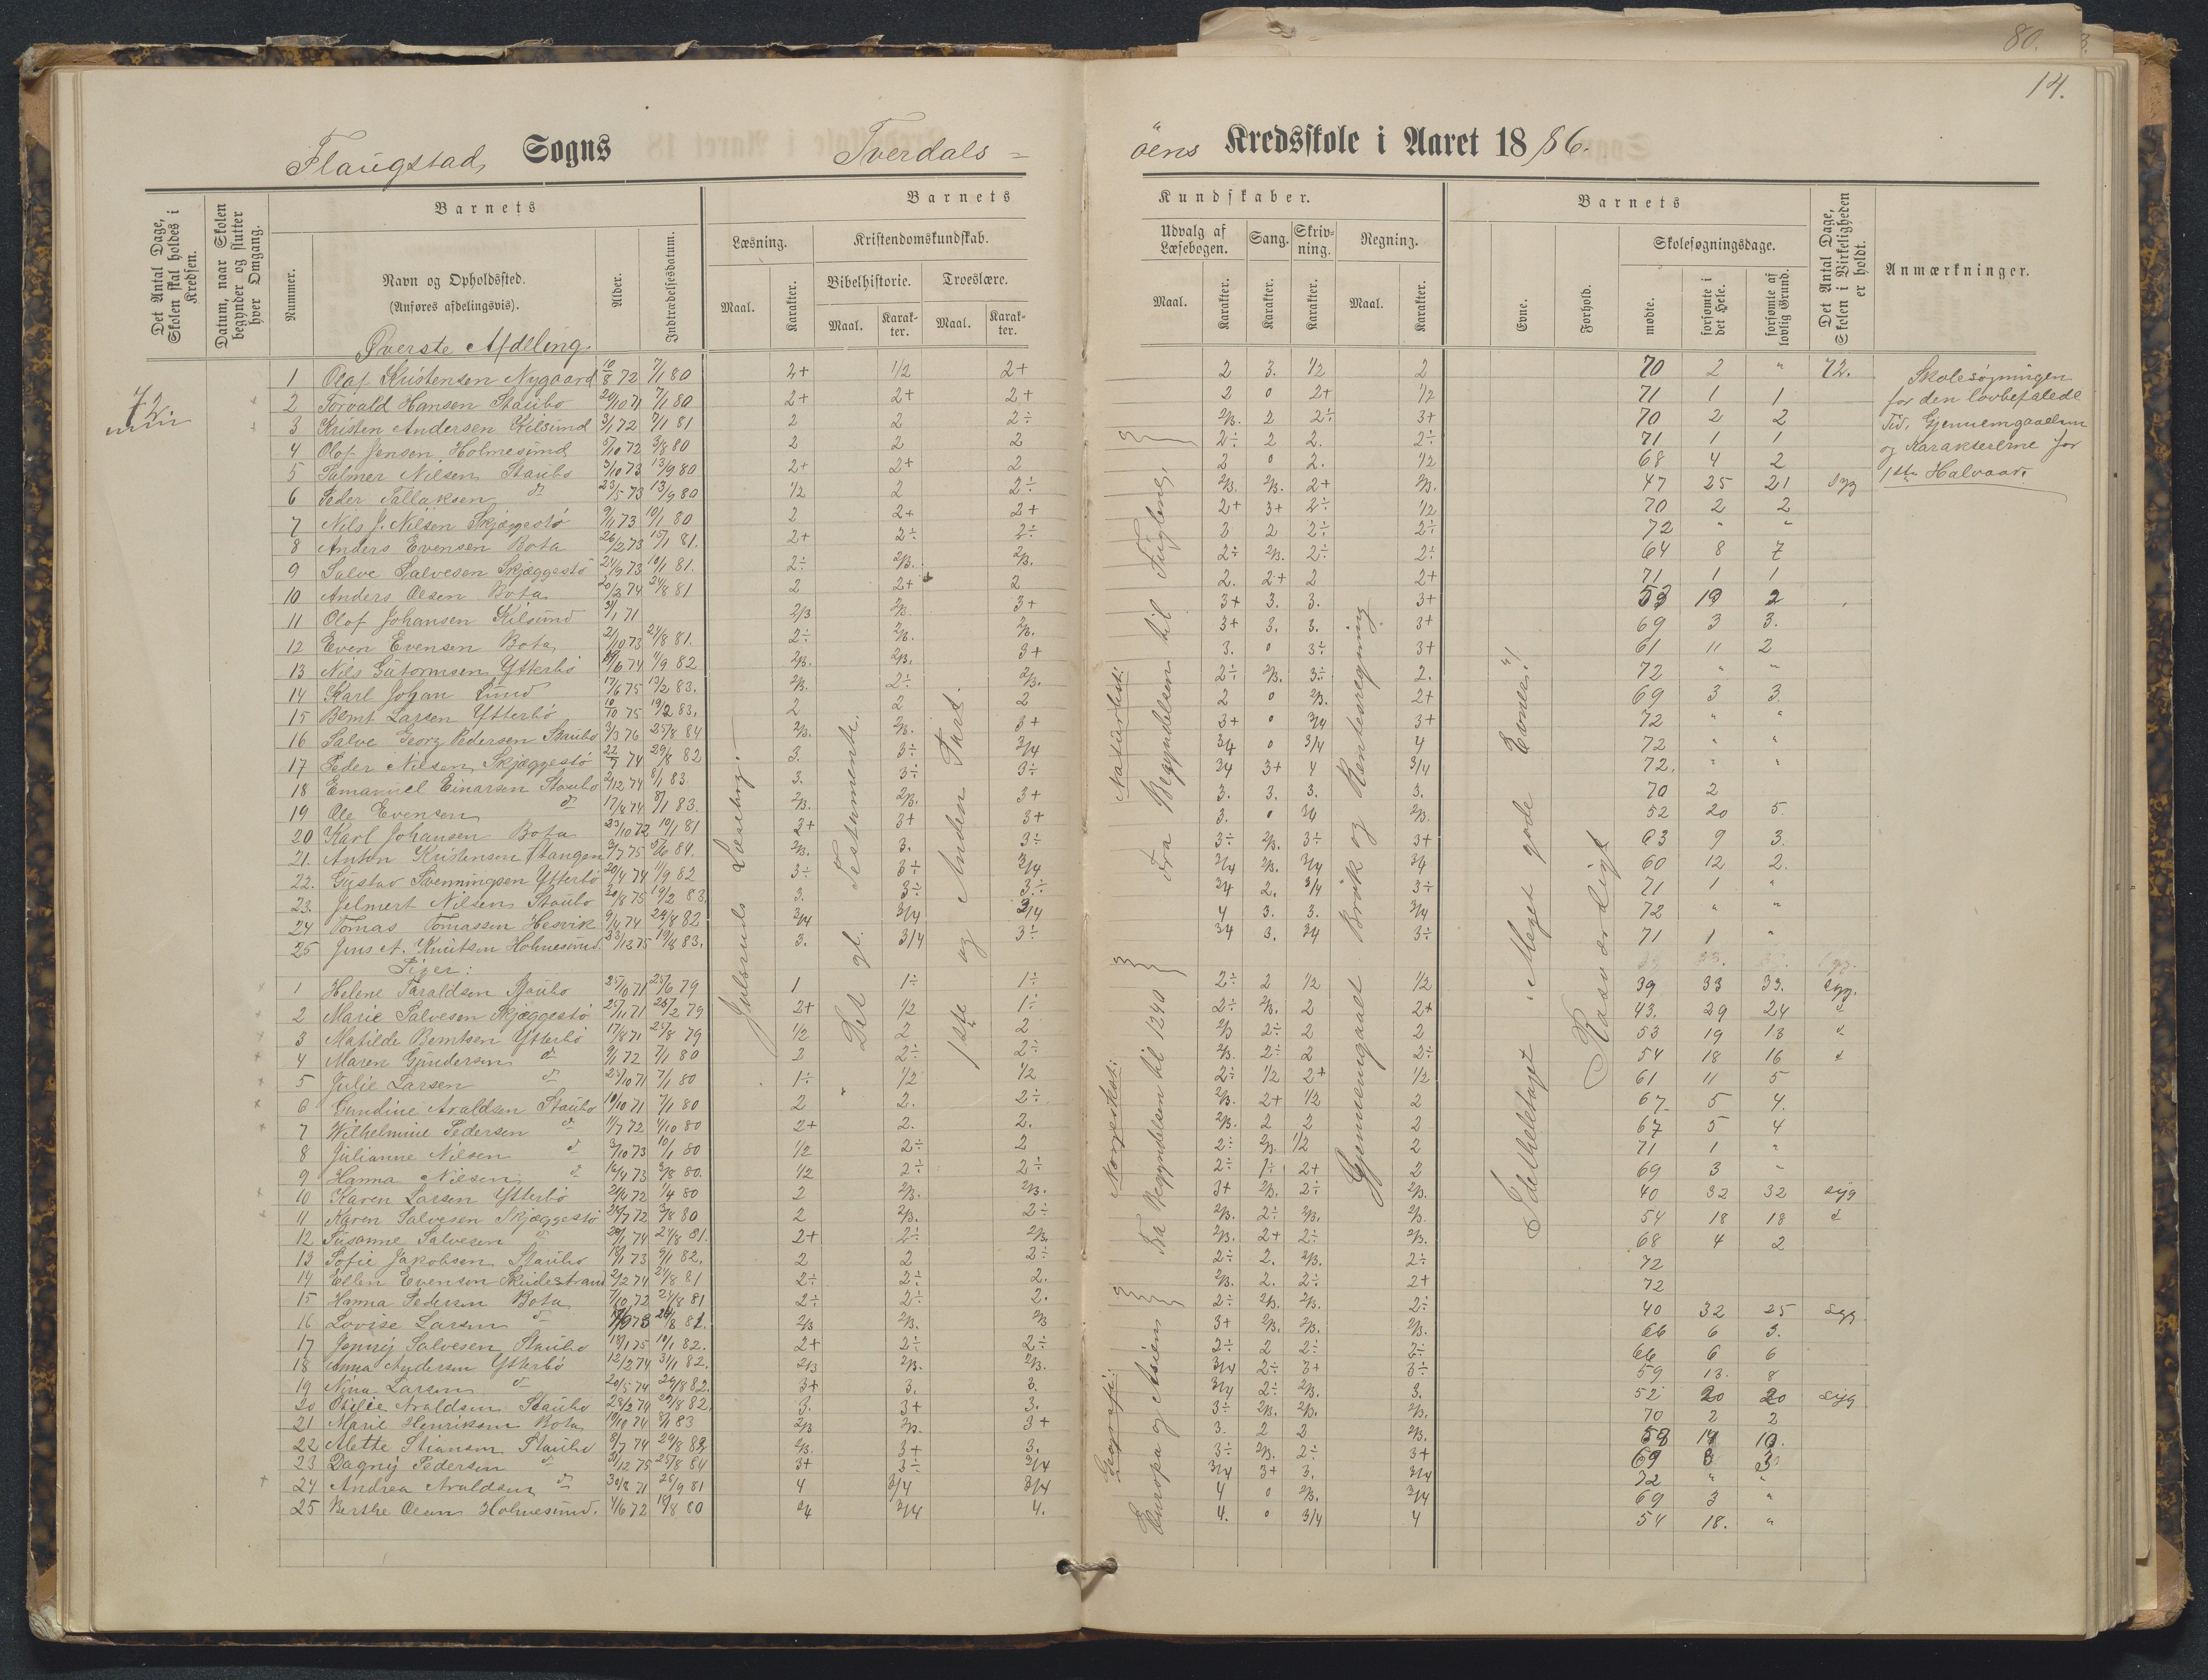 80.
14.
Flaugstad Sogns Tverdals =
öens Kredsskole i Aaret 1886.
Det Antal Dage, Skolen skal holdes i Kredsen.
Datum, naar Skolen begynder og slutter hver Omgang.
Barnets
Nummer.
Navn og Opholdssted.
(Anføres afdelingsvis).
Alder.
Indtrædelsesdatum.
Barnets Kundskaber.
Læsning.
Maal.
Karakter.
Kristendomskundskab.
Bibelhistorie.
Maal.
Karakter.
Troeslære.
Maal.
Karakter.
Udvalg af Læsebogen.
Maal.
Karakter.
Sang.
Karakter.
Skrivning.
Karakter.
Regning.
Maal.
Karakter.
Barnets
Evne.
Forhold.
Skolesøgningsdage.
mødte.
forsømte i det Hele.
forsømte af lovlig Grund.
Det Antal Dage, Skolen i Virkeligheden er holdt.
Anmærkninger.
Øverste Afdeling.
72
1 Olaf Kristensen Nygaard 10/8 72 7/1 80 2+ 1/2 2+ 2 3. 1/2 2 70 2 " 72.
2 Torvald Hansen Staubo 20/10 71 7/1 80 2+ 2+ 2+ 2 0 2+ 1/2 71 1 1
3 Kristen Andersen Kilsund 3/1 72 7/1 81 2 2 2÷ 2/3. 2 2÷ 3+ 70 2 2
4 Olof Jensen Holmesund 5/10 72 3/8 80 2 2 2 2÷ 2 2. 2÷ 71 1 1
5 Salmer Nilsen Staubo 3/10 73 13/9 80 2+ 2+ 2 2 0 2. 1/2 68 4 2
6 Peder Tallaksen d 23/5 73 13/9 80 1/2 2 2÷ 2/3. 2/3. 2+ 2/3. 47 25 21 Syg
7 Nils J. Nilsen Skjæggestö 9/11 73 10/1 80 2 2+ 2+ 2+ 3+ 2÷ 1/2 70 2 2
8 Anders Evensen Bota 26/2 73 15/1 81. 2+ 2÷ 2÷ 3 2 2÷ 2÷ 72 " "
9 Salve Salvesen Skjæggestö 24/9 73 10/1 81. 2÷ 2/3. 2/3. 2÷ 2/3. 2÷ 2÷ 64 8 7
10 Anders Olsen Bota 20/3 74 24/8 81 2 2+ 2 2. 2+ 2 2+ 71 1 1
11 Olof Johansen Kilsund 3/1 71 2/3 2/3. 3+ 3+ 3. 3. 3+ 53 19 2
12 Even Evensen Bota 2/10 73 24/8 81. 2÷ 2/3. 2/3. 3+ 3. 3. 3+ 69 3 3.
13 Nils Gutormsen Ytterbö 1/9 82 2/3. 2/3. 3+ 3. 0 3÷ 3+ 61 11 2
14 Karl Johan Lund 17/6 75 13/2 83. 2/3. 2÷ 2/3. 2÷ 2/3. 3÷ 2. 72 " "
15 Bernt Larsen Ytterbö 10/10 75 19/2 83. 2 2 2 2 0 2/3. 2+ 69 3 3
16 Salve Georg Pedersen Staubo 3/3 76 25/8 84 2/3. 2/3. 3+ 3+ 0 3/4 3+ 72 " "
17 Peder Nilsen Skjæggestö 22/7 74 29/8 82 3. 3÷ 3/4 3/4 0 3/4 4 72 " "
18 Emanuel Einarsen Staubo 2/12 74 8/1 83 3. 3÷ 3÷ 3/4 3+ 4 3/4 72. " "
19 Ole Evensen d 17/8 74 8/1 83. 2/3. 2/3. 3+ 3. 3. 3. 3. 70 2
20 Karl Johansen Bota 23/10 72 10/1 81 3+ 3+ 3+ 3. 0 3/4 2/3. 52 20 5.
21. Anton Kristensen Stangen 3/7 75 84. 2/3. 3. 3÷ 3÷ 2/3. 3÷ 3+ 63 9 3.
22. Gustav Svenningsen Ytterbö 20/4 74 1/9 82 3÷ 3÷ 3/4 3/4 2/3. 3/4 3/4 60 12 2.
23. Jelmert Nilsen Staubo 20/8 75 19/2 83. 3. 3÷ 3÷ 3/4 2. 3/4 3÷ 71 1 "
24 Tomas Tomassen Hesvik 9/4 74 29/8 82 3/4 3/4 3/4 4 3. 3. 3/4 72 " "
25 Jens A. Knutsen Holmesund 23/12 75 19/8 83. 3. 3/4 3÷ 3/4 3. 3/4 3÷ 71 1 "
Piger:
1 Helene Taraldsen Staubo 25/10 71 25/6 79 1 1÷ 1÷ 2÷ 2 1/2 1/2 39 33 33. Syg.
2 Marie Salvesen Skjæggestö 25/11 71 25/2 79 2+ 1/2 1÷ 2÷ 2/3. 2 2+ 43. 29 24 d
3 Matilde Berntsen Ytterbö 17/8 71 25/8 79 1/2 2 2 2/3 2÷ 2 2 53 19 13 d
4 Maren Gundersen d 9/1 72 7/1 80 2 2÷ 2÷ 2/3. 2÷ 2 2÷ 54 18 16 d
5 Julie Larsen d 25/10 71 7/1 80 1÷ 1/2 1/2 2÷ 1/2 2+ 1/2 61 11 5
6 Gundine Araldsen Staubo 10/10 71 7/1 80 2 2. 2÷ 2/3. 2+ 1/2 2 67 5 4.
7 Wilhelmine Pedersen d 11/7 72 4/10 80 2+ 2. 2. 2/3. 2 2 2 67 5 4
8 Julianne Nilsen d 3/10 73 10/1 80 1/2 2÷ 2 2÷ 2/3. 1/2 2 71 1 "
9 Hanna Nilsen d 16/4 73 3/8 80. 1/2 2÷ 2÷ 2÷ 1÷ 2+ 2 69 3 "
10 Karen Larsen Ytterbö 24/4 72 1/4 80 2 2/3. 2/3. 3+ 2/3. 2÷ 2/3. 40 32 32 syg
11 Karen Salvesen Skjæggestö 29/7 72 3/8 80 2 2/3. 2÷ 2/3. 2÷ 2/3. 2/3. 54 18 18 d
12 Susanne Salvesen d 20/1 74 24/8 81. 2+ 2÷ 2/3. 2/3. 2+ 2÷ 2/3. 68 4 2
13 Sofie Jakobsen Staubo 18/1 73 9/1 82. 2 2 2÷ 2÷ 2. 2/3. 2÷ 72
14 Ellen Evensen Skidestrand 2/2 74 24/8 81 2÷ 2÷ 2. 2/3. 2. 2÷ 2+ 72
15 Hanna Pedersen Bota 7/10 72 24/8 81 2÷ 2÷ 2. 2÷ 2/3. 2/3. 2÷ 40 32 25 Syg
16 Lovise Larsen d 24/8 81. 2/3 2/3. 2/3 3+ 2/3. 2/3. 2/3. 66 6 3.
17 Jenny Salvesen Staubo 18/1 75 10/1 82. 2+ 2÷ 2÷ 2÷ 2 2÷ 2÷ 66 6 6
18 Anna Andersen Ytterbö 12/2 74 31/1 82. 2/3 2/3. 2/3. 3/4 2÷ 3+ 3÷ 59 13. 8
19 Nina Larsen d 20/5 74 29/8 82. 3+ 3. 3. 3/4 2÷ 2/3. 3. 52 20 20 syg
20 Otilie Araldsen Staubo 28/2 74 29/8 82. 3. 3+ 3. 3÷ 2/3. 2/3. 2/3. 70 2 2
21 Marie Henriksen Bota 10/10 74 8/1 83 2/3 2/3. 3+ 3. 2 2 2/3. 58 14 10.
22 Alette Stiansen Staubo 8/7 74 29/8 82 2/3. 3+ 3. 3÷ 2/3. 2÷ 3+ 69 3 3
23 Dagny Pedersen d 31/12 75 25/8 84 3+ 3÷ 3/4 3/4 3+ 3. 3/4 72 " "
24 Andrea Araldsen d 30/8 71 26/9 81 4 3/4 3/4 4 0 2/3. 3/4 69 3 "
25 Berthe Olsen Holmesund. 4/6 72 18/8 80 3/4 3/4 4. 4. 0 3/4 4 54 18. "
Jensruds Læsebog.
Det gl. Testamente.
1ste og Anden Part.
Naturhist:
Fra Begyndelsen til Fuglene,
Norgeshist:
Fra Begyndelsen til 1240
Geografi:
Europa og Asien
Gjennemgaaet Brök og Rentesregning
Idethele taget: Meget gode Evner!
Roesværdigt
Skolesøgningen
for den lovbefalede
Tid, Gjennemgaaelsen
og Karaktererne for
1ste Halvaar.